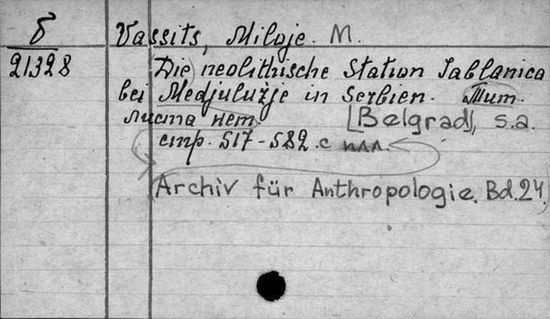 б
21328
Vassits, Miloje. M.
Die neolithische Station Jablanica
bei Medjulužje in Serbien. Тит.
листа нет. [Belgrad], s.a.
стр. 517-582. с илл.
Archiv für Anthropologie. Bd.27.